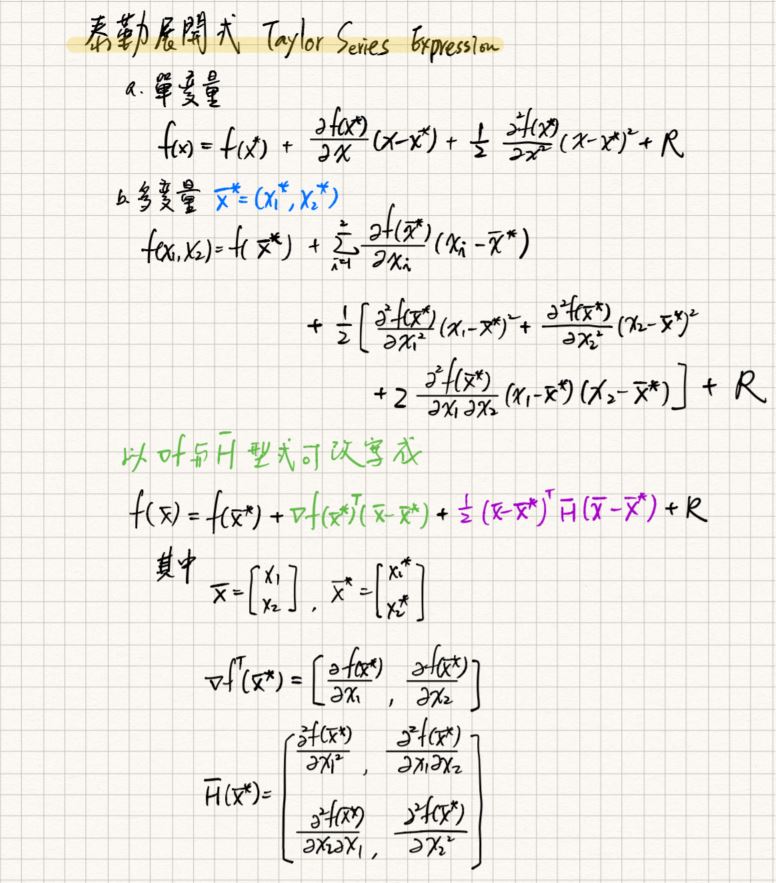 泰勒展開式 Taylor Series Expression
a. 單變量
f(x) = f(x*) + ∂f(x*)/∂x (x-x*) + 1/2 ∂²f(x*)/∂x² (x-x*)² + R
b. 多變量 x̄* = (x₁*, x₂*)
f(x₁, x₂) = f(x̄*) + Σ_{i=1}^{2} ∂f(x̄*)/∂xᵢ (xᵢ - x̄*)
+ 1/2 [ ∂²f(x̄*)/∂x₁² (x₁-x̄*)² + ∂²f(x̄*)/∂x₂² (x₂-x̄*)²
+ 2 ∂²f(x̄*)/∂x₁∂x₂ (x₁-x̄*)(x₂-x̄*) ] + R
以 ∇f 與 H̄ 型式可改寫成
f(x̄) = f(x̄*) + ∇f(x̄*)ᵀ(x̄-x̄*) + 1/2 (x̄-x̄*)ᵀ H̄ (x̄-x̄*) + R
其中 x̄ = [x₁ x₂], x̄* = [x₁* x₂*]
∇fᵀ(x̄*) = [ ∂f(x̄*)/∂x₁ , ∂f(x̄*)/∂x₂ ]
H̄(x̄*) = [ ∂²f(x̄*)/∂x₁² , ∂²f(x̄*)/∂x₁∂x₂
∂²f(x̄*)/∂x₂∂x₁ , ∂²f(x̄*)/∂x₂² ]